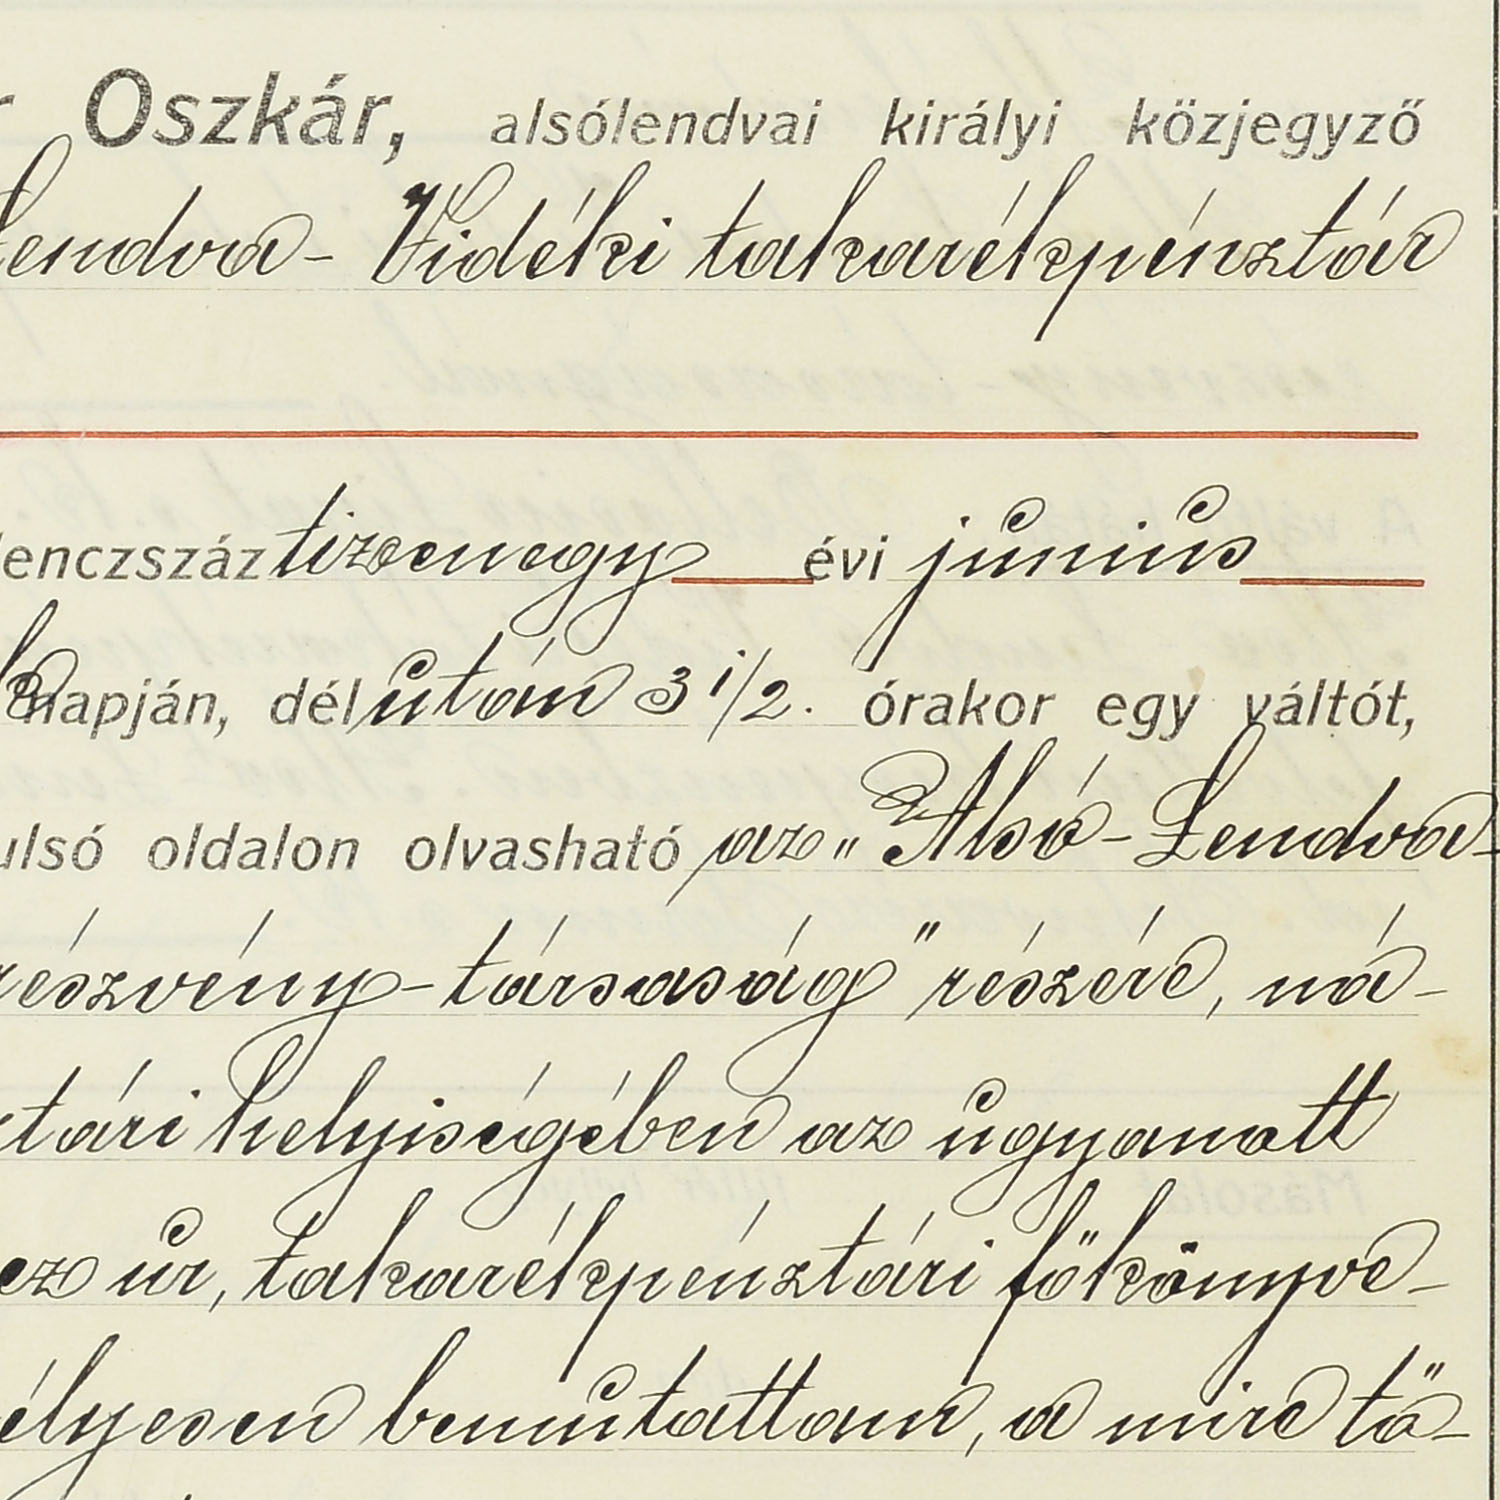 r Oszkár, alsólendvai királyi közjegyző
Lendva- Vidéki takarékpénztár
lenczszáz tizenegy évi junius
napján, délután 3 1/2. órakor egy váltót,
ulsó oldalon olvasható az „Alsó-Lendva-
részvény-társaság" részére, na-
tári helyiségében az ugyanott
ez ur, takarékpénztári főkönyve-
élyesen bemutattam, a mire tő-